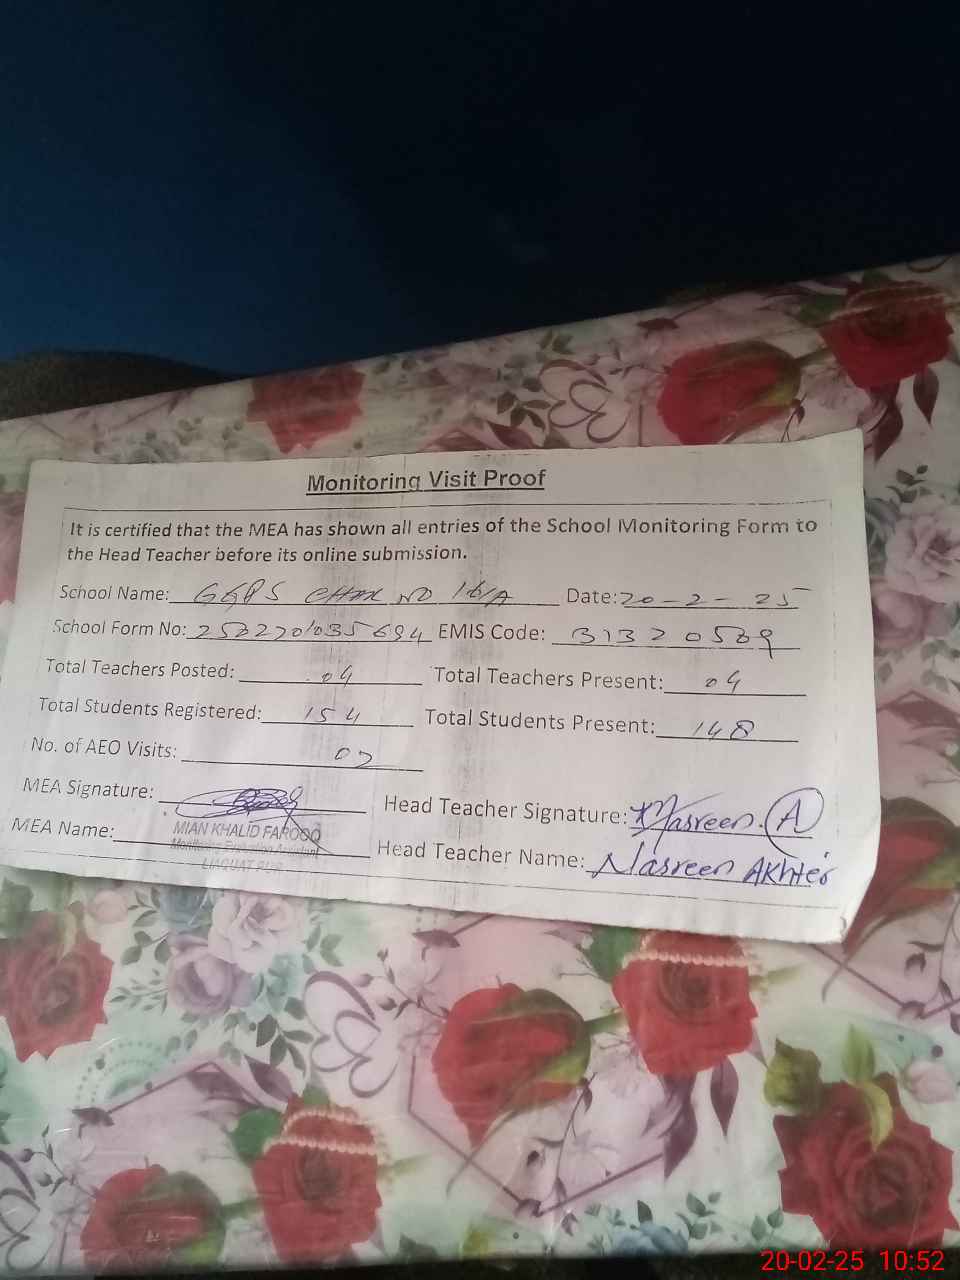 Monitoring Visit Proof
It is certified that the MEA has shown all entries of the School Monitoring Form to
the Head Teacher before its online submission.
School Name: GGPS CHAK NO 16/A Date: 20-2-25
School Form No: EMIS Code: 31320509
Total Teachers Posted: 04 Total Teachers Present: 04
Total Students Registered: 154 Total Students Present: 148
No. of AEO Visits: 02
MEA Signature: Head Teacher Signature: Nasreen. A
MEA Name: MIAN KHALID FAROOQ Head Teacher Name: Nasreen AKhter
Monitoring Evaluation Assistant
LIAQUAT PUR
20-02-25 10:52